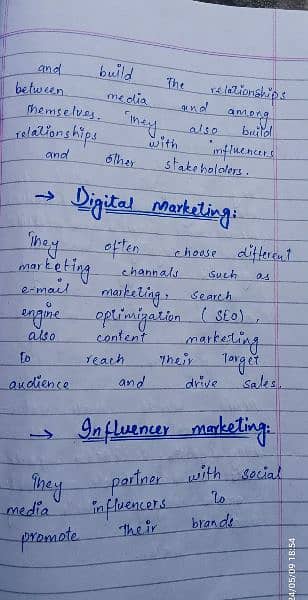 and build the relationships
between media and among
themselves. They also build
relationships with influencers
and other stakeholders.
→ Digital marketing:
They often choose different
marketing channals such as
e-mail marketing, search
engine optimization (SEO),
also content marketing
to reach their target
audience and drive sales.
→ Influencer marketing:
They partner with social
media influencers to
promote their brands
24/05/09 18:54